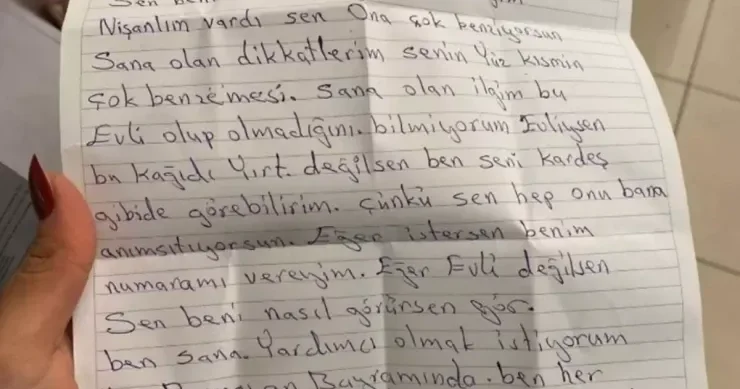 Sen beni
Nişanlım vardı sen Ona çok benziyorsun
Sana olan dikkatlerim senin Yüz kısmın
çok benzemesi. Sana olan ilgim bu
Evli olup olmadığını bilmiyorum Evliysen
bu Kağıdı Yırt. değilsen ben seni kardeş
gibide görebilirim. Çünkü sen hep onu bana
anımsıtıyorsun. Eğer istersen benim
numaramı vereyim. Eğer Evli değilsen
Sen beni nasıl görürsen gör.
ben sana. Yardımcı olmak istiyorum
Bayramında. ben her